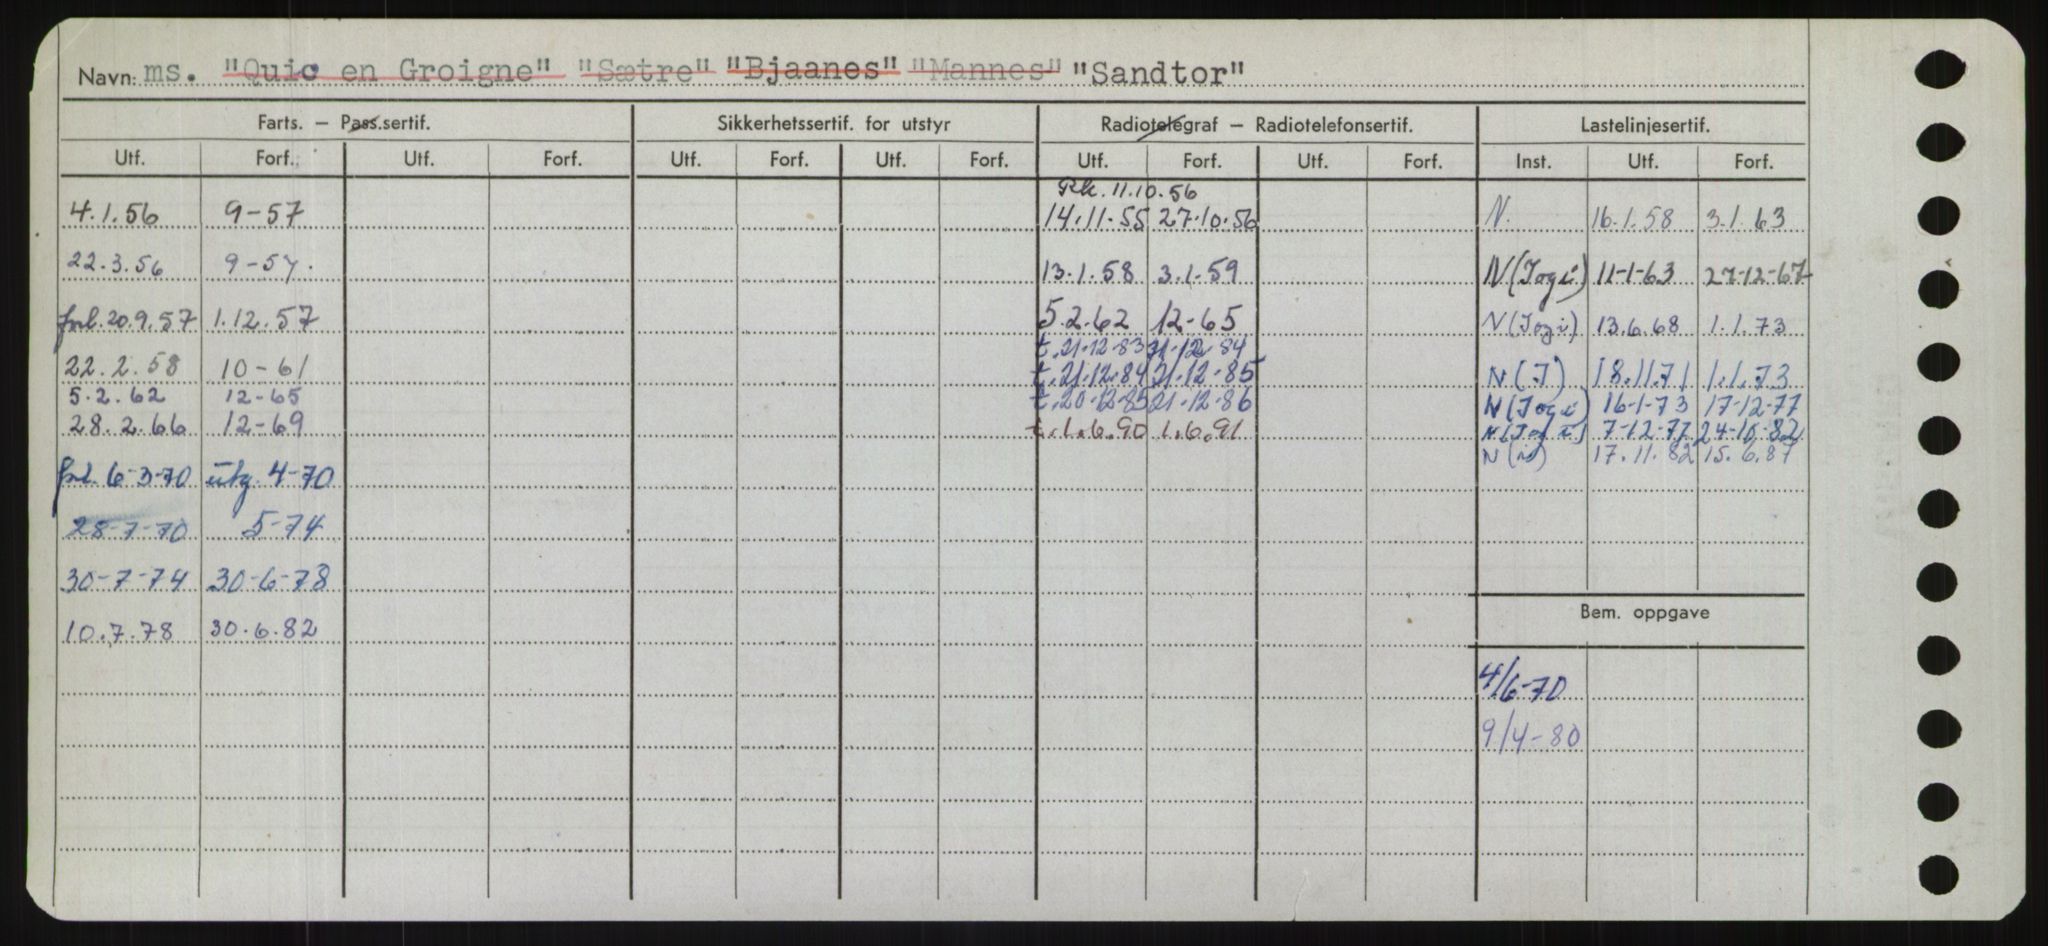 Navn: ms. "Quic en Groigne" "Sætre" "Bjaanes" "Mannes" "Sandtor"
Farts. — Pass.sertif. Sikkerhetssertif. for utstyr Radiotelegraf — Radiotelefonsertif. Lastelinjesertif.
Utf. Forf. Utf. Forf. Utf. Forf. Utf. Forf. Utf. Forf. Utf. Forf. Inst. Utf. Forf.
Rk. 11.10.56
4.1.56 9-57 14.11-55 27.10.56 N. 16.1.58 3.1.63
22.3.56 9-57. 13.1.58 3.1-59 N(Jogi) 11-1-63 27-12-67
forl. 20.9.57 1.12.57 5.2.62 12-65 N(Jogi) 13.6.68 1.1.73
t. 21-12-83 21-12-84
22.2.58 10-61 t. 21.12.84 21.12-85 N(J) 18.11.71 1.1.73
5.2.62 12-65 t. 20-12-85 21-12-86 N(Jogi) 16-1-73 17-12-77
28.2.66 12-69 t. 1.6.90 1.6.91 N(Jogi) 7-12-77 24-10-82
N 17.11.82 15.6.87
forl. 6-3-70 utg. 4-70
28-7-70 5-74
30-7-74 30-6-78
Bem. oppgave
10.7.78 30.6.82
4/6-70
9/4-80